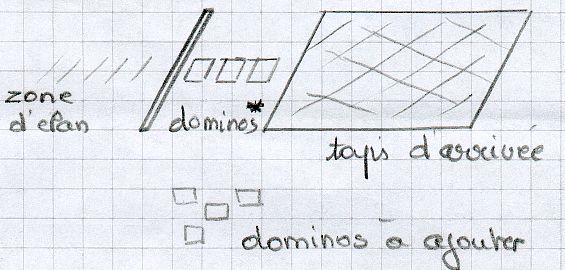 zone
d'élan
dominos*
tapis d'arrivée
dominos à ajouter